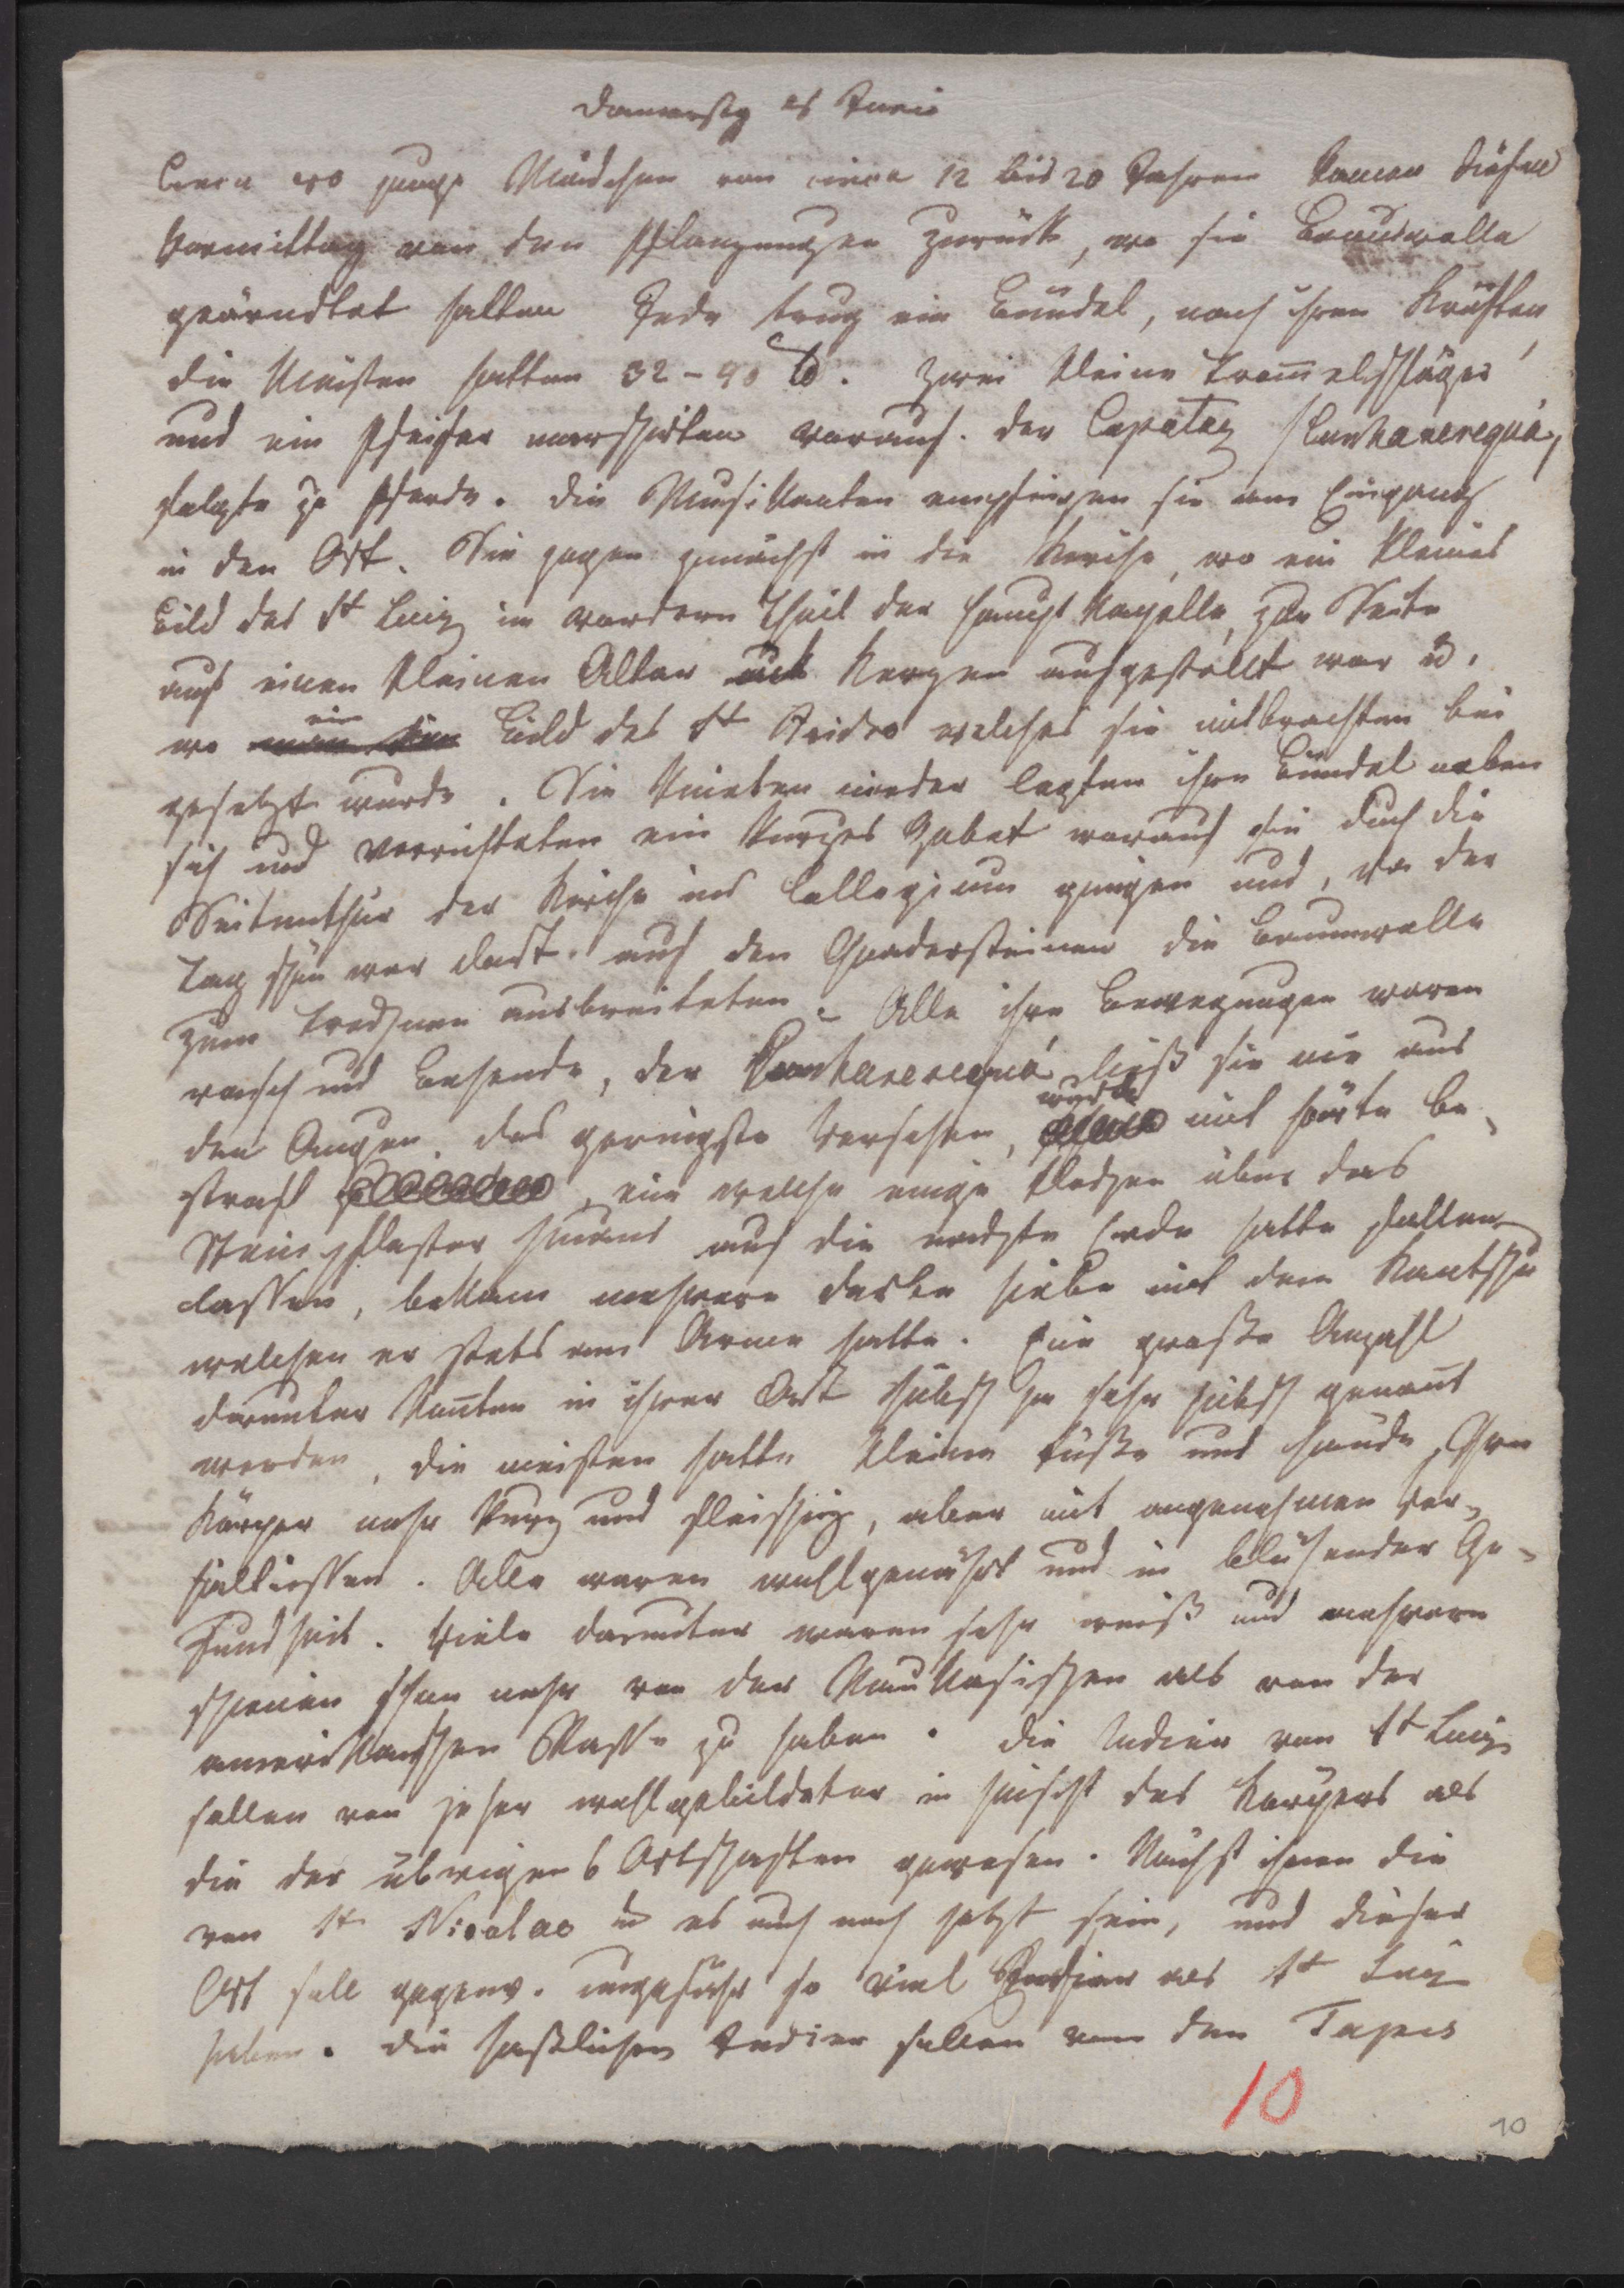 Donnerstg
Circa 40 junge Mädchen von circa 12 bis 20 Jahren kamen diesen
Vormittag von den Pflanzungen zurück, wo sie Baumwolle
geärndtet hatten Jede trug ein Bündel, nach ihren Kräften,
die Meisten hatten 32 – 40 ℔. Zwei kleine Trom̅elschläger
und ein Pfeifer marschirten vorauf. der Capataz /Cunhanerequá,
folgte zu Pferde. die Musikanten empfingen sie am Eingang
in den Ort. Sie zogen zunächst in die Kirche, wo ein kleines
Bild des St Luiz im vordern Theil der Haupt Kapelle, zur Seite
auf einen kleinen Altar mit Kerzen aufgestellt war u.
wo ein Bild des St Isidro welches sie mitbrachten bei
gesetzt wurde. Sie knieten nieder legten ihre Bündel neben
sich und verrichteten ein kurzes Gebet worauf sie durch die
Seitenthür der Kirche ins Collegium gingen und, da der
Tag schön war dort auf den Quadersteinen die Baumwolle
zum trocknen ausbreiteten. – Alle ihre Bewegungen waren
rasch und behende, der Cunhanerequá ließ sie nie aus
den Augen. das geringste Versehen, wurde mit Härte be-
straft, eine welche einige Flocken über das
Steinpflaster hinaus auf die nackte Erde hatte fallen
lassen, bekam mehrere derbe Hiebe mit dem Kantschu
welchen er stets am Arme hatte. Eine große Anzahl
darunter kon̅ten in ihrer Art hübsch ja sehr hübsch genan̅t
werden, die meisten hatte kleine Füße und Hände, Ihre
Körper mehr kurz und fleischig, aber mit angenehmen Ver-
hältnissen. Alle waren wohlgenährt und in blühender Ge-
sundheit. Viele darunter waren sehr weiß und mehrere
schienen schon mehr von der Kaukasischen als von der
amerikanischen Rasse zu haben. die Indier von St Luiz
sollen von jeher wohlgebildeter in Hinsicht des Körpers als
die der übrigen 6 Ortschaften gewesen. Nächst ihnen die
von St Nicolao u es auch noch jetzt sein, und dieser
Ort soll gegenw. ungefähr so viel Indier als St Luiz
haben. die häßlichen Indier sollen von den Tapes
10
10